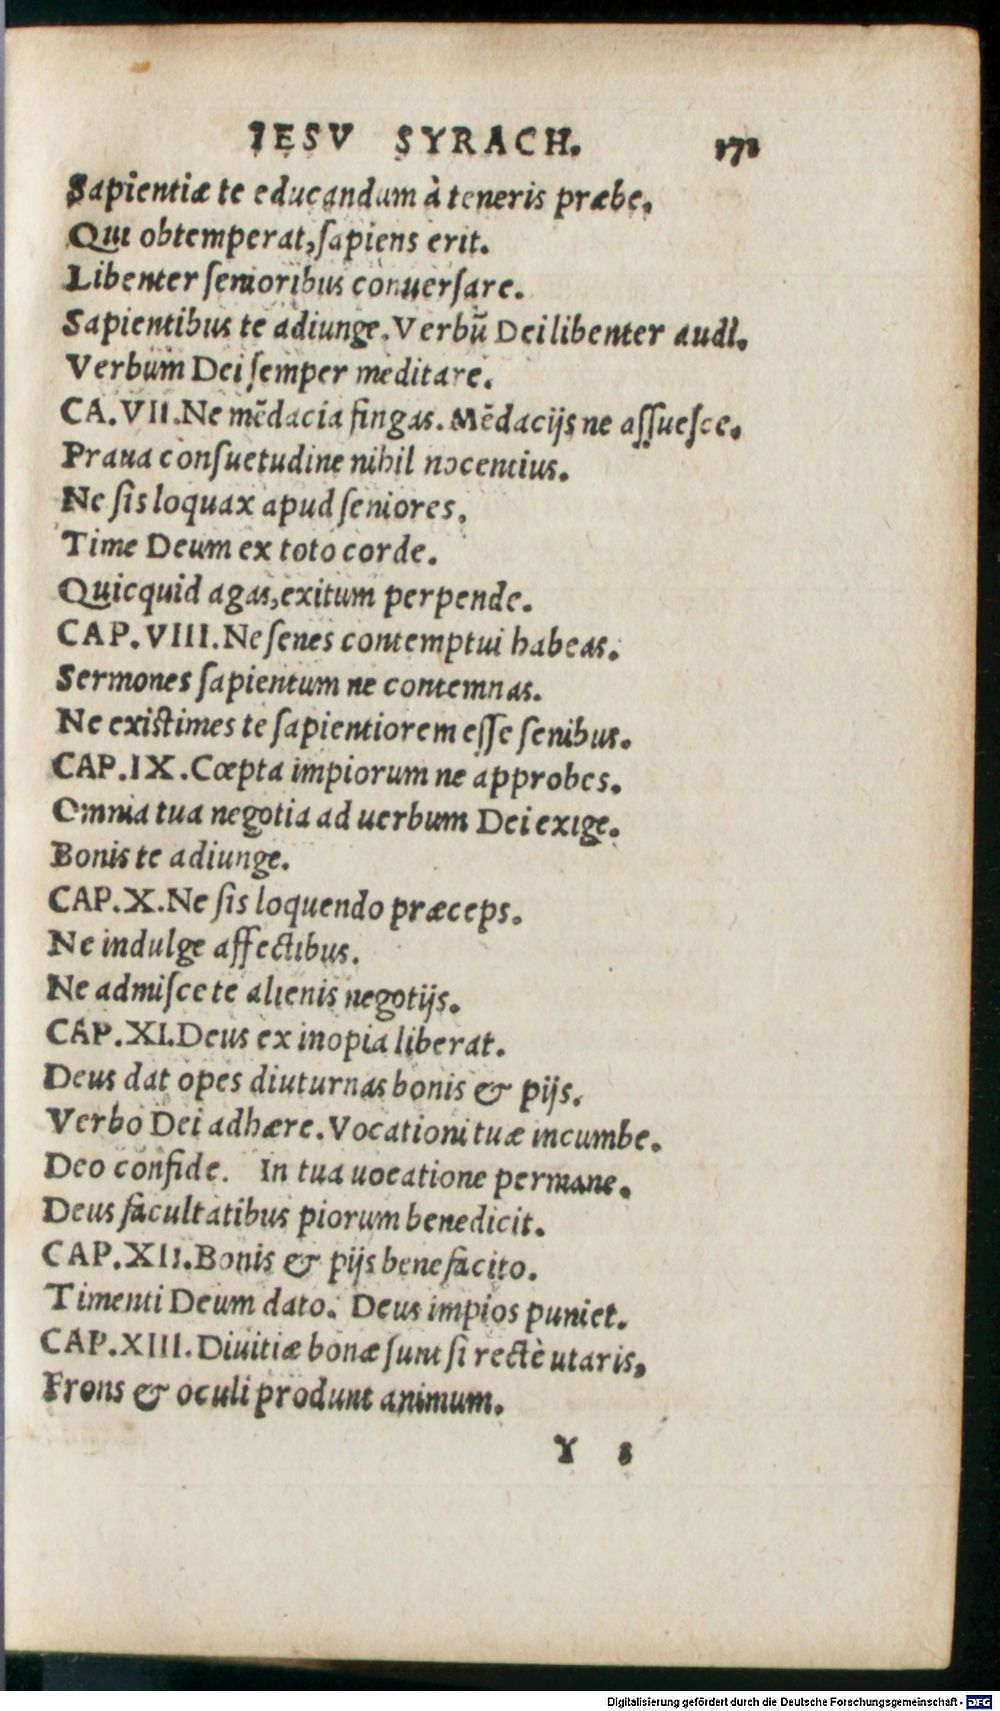 IESV SYRACH. 172
Sapientiæ te educandum à teneris præbe.
Qui obtemperat, ſapiens erit.
Libenter ſenioribus conuerſare.
Sapientibus te adiunge. Verbū Dei libenter audi.
Verbum Dei ſemper meditare.
CA. VII. Ne mēdacia fingas. Mēdacijs ne aſſueſce.
Praua conſuetudine nihil nocentius.
Ne ſis loquax apud ſeniores.
Time Deum ex toto corde.
Quicquid agas, exitum perpende.
CAP. VIII. Ne ſenes contemptui habeas.
Sermones ſapientum ne contemnas.
Ne exiſtimes te ſapientiorem eſſe ſenibus.
CAP. IX. Cœpta impiorum ne approbes.
Omnia tua negotia ad uerbum Dei exige.
Bonis te adiunge.
CAP. X. Ne ſis loquendo præceps.
Ne indulge affectibus.
Ne admiſce te alienis negotijs.
CAP. XI. Deus ex inopia liberat.
Deus dat opes diuturnas bonis & pijs.
Verbo Dei adhære. Vocationi tuæ incumbe.
Deo confide. In tua uocatione permane.
Deus facultatibus piorum benedicit.
CAP. XII. Bonis & pijs benefacito.
Timenti Deum dato. Deus impios puniet.
CAP. XIII. Diuitiæ bonæ ſunt ſi rectè utaris.
Frons & oculi produnt animum.
Y
Digitalisierung gefördert durch die Deutsche Forschungsgemeinschaft - DFG